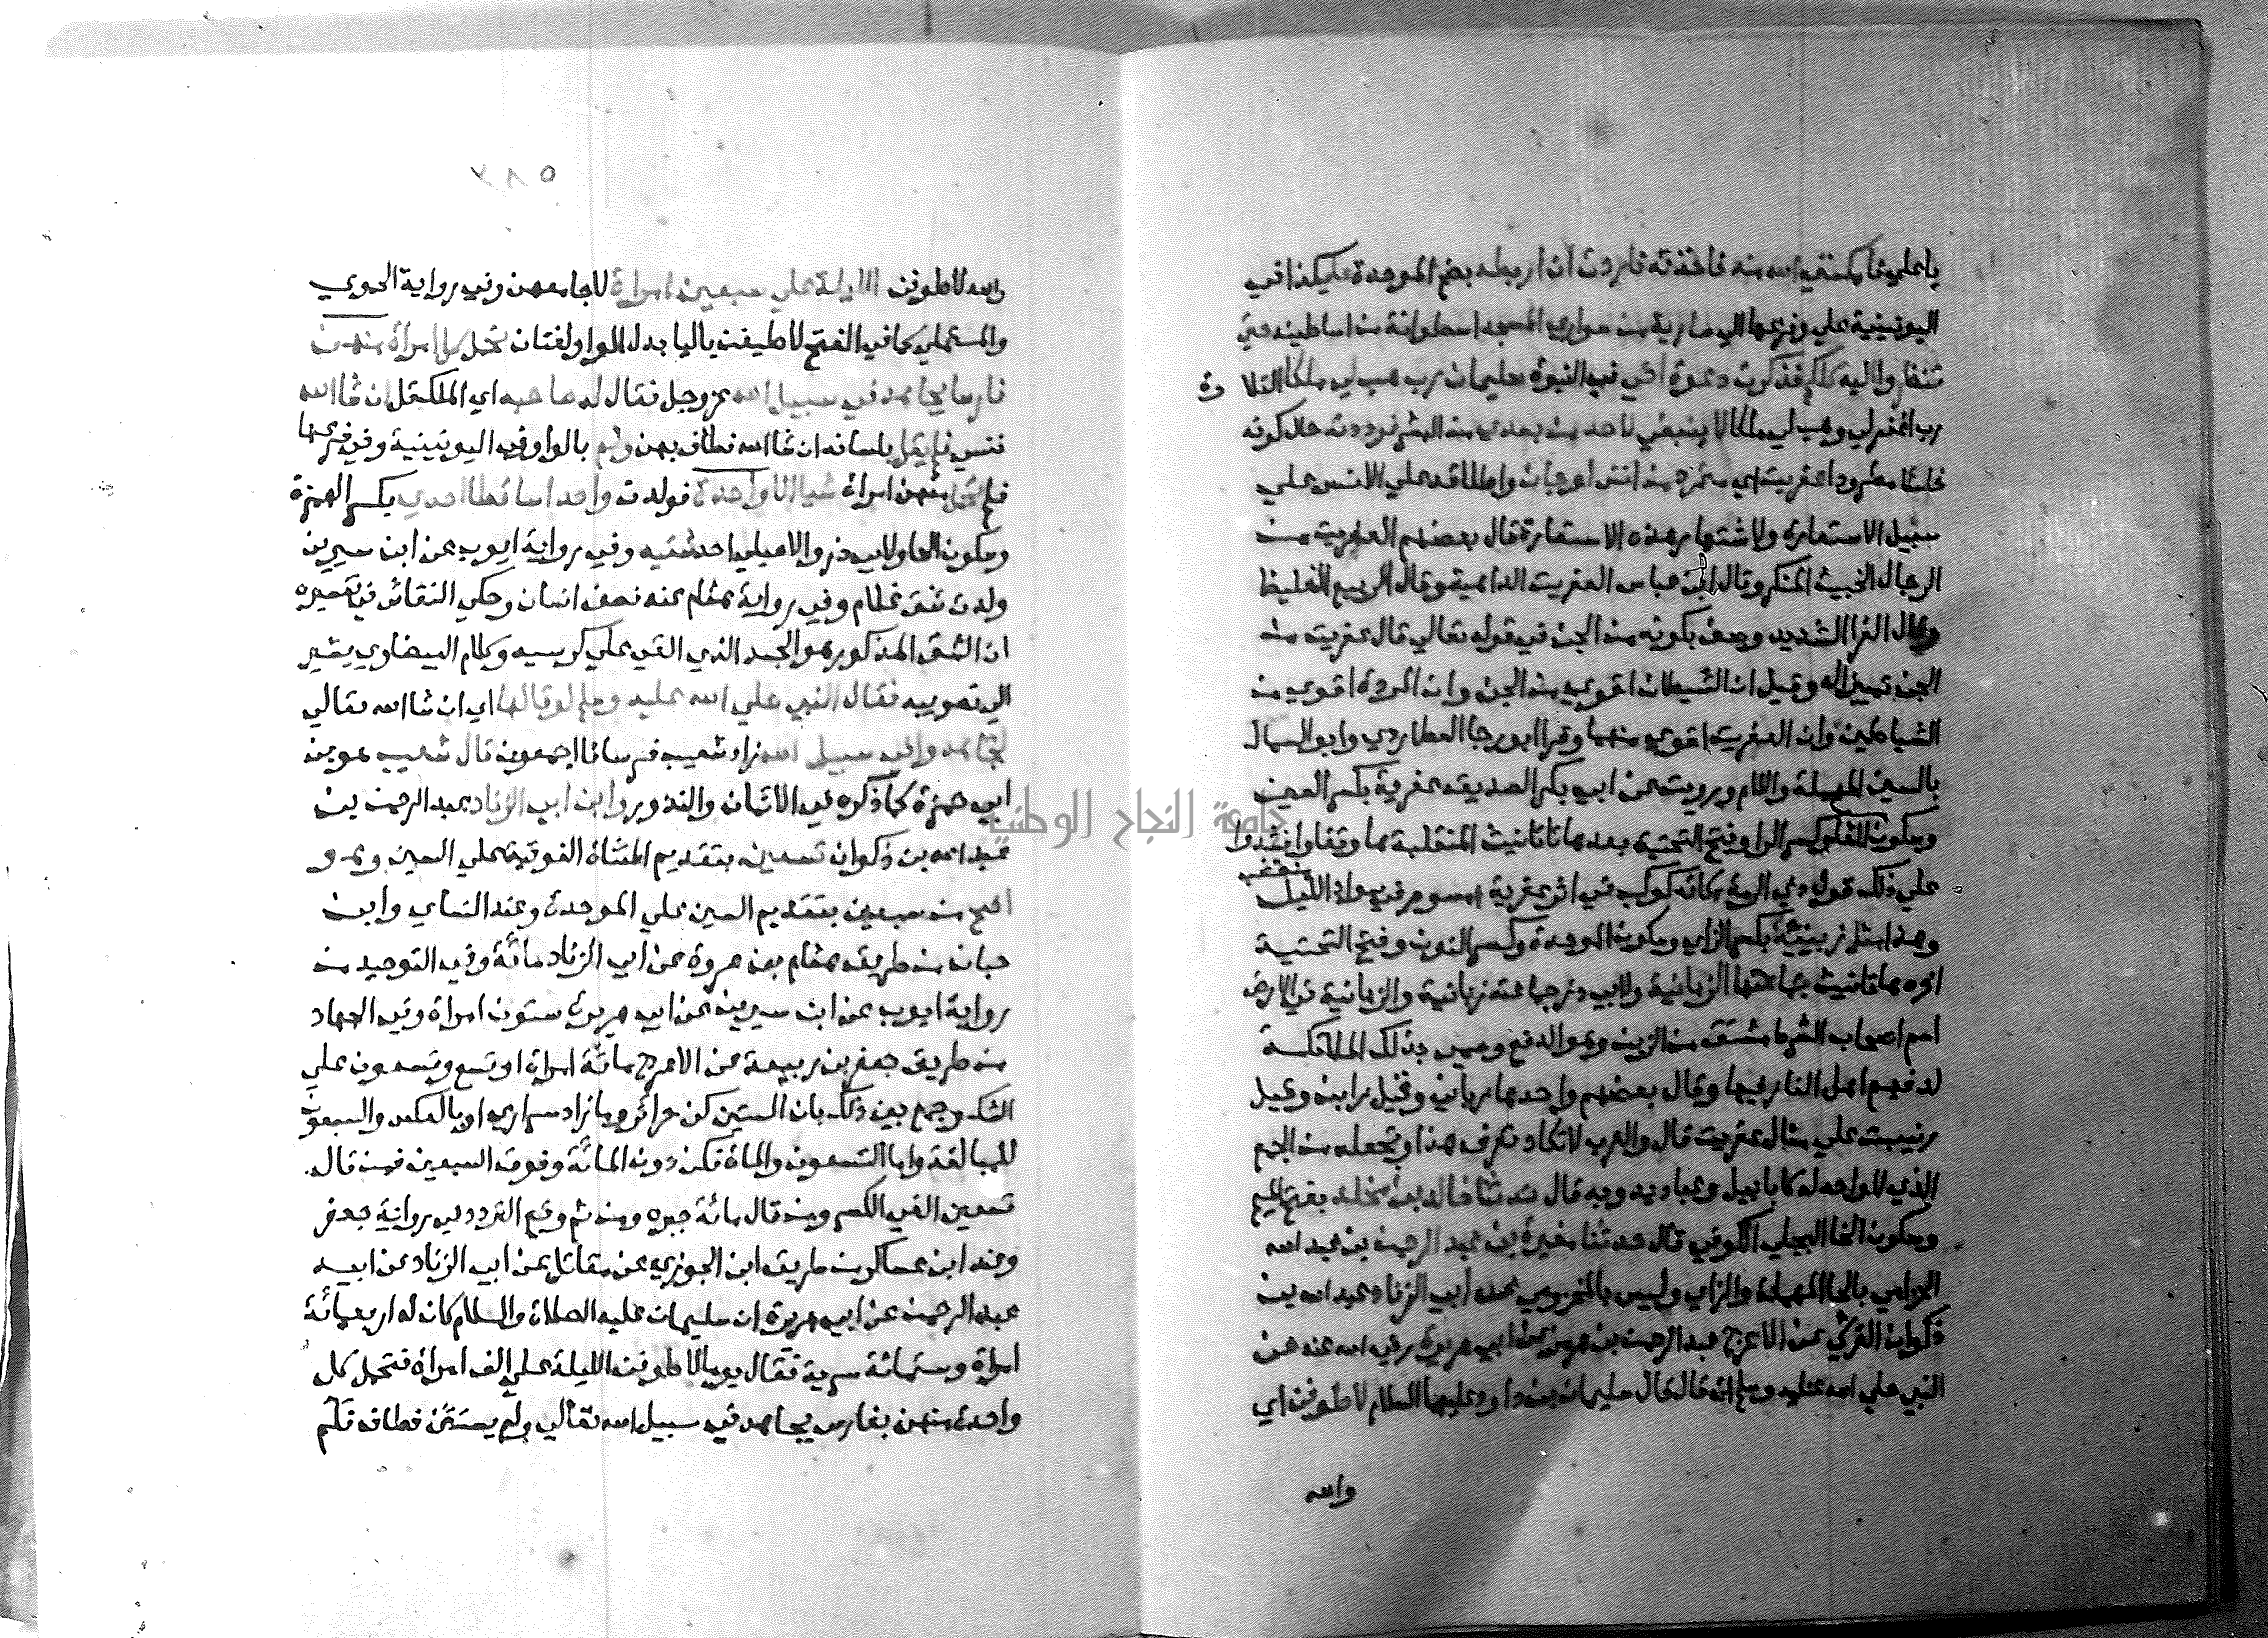 يا علي فامكنني الله منه فاخذته فاردت ان اربطه بضم الموحدة عليكذا في
اليونينية علي وفرعها الي سارية من سواري المسجد اسطوانة من اساطينه حتي
تنظروا اليه كلكم فذكرت دعوة اخي في النبوة سليمان رب هب لي ملكا التلا وة
رب اغفر لي وهب لي ملكا لا ينبغي لاحد من بعدي من البشر فرددته حال كونه
خاسئا مطرودا عفريت اي متمرد من انس او جان واطلاقه علي الانس علي
سبيل الاستعارة ولاشتهار هذه الاستعارة قال بعضهم العفريت من
الرجال الخبيث المنكر وقال ابن عباس العفريت الداهية وقال الربيع الغليظ
وقال الفرا الشديد وصف بكونه من الجن في قوله تعالي قال عفريت من
الجن تمييزا له وقيل ان الشيطان اقوي من الجن وان المردة اقوي من
الشياطين وان العفريت اقوي منهما وقرا ابو رجا العطاردي وابو السمال
بالسين المهملة واللام ورويت عن ابي بكر الصديق عفرية بكسر العين
وسكون الفا وكسر الرا وفتح التحتية بعدها تا تانيث المنقلبة ها وقفا وانشدوا
علي ذلك قول ذي الرمة كانه كوكب في اثر عفرية مسوم في سواد الليل منقضب
وهذا مثل زبينية بكسر الزاي وسكون الموحدة وكسر النون وفتح التحتية
اخره ها تانيث جماعتها الزبانية ولابي ذر جماعته زبانية والزبانية في الاصل
اسم اصحاب الشرط مشتق من الزبن وهو الدفع وسمي بذلك الملائكة
لدفعهم اهل النار فيها وقال بعضهم واحدها زباني وقيل زابن وقيل
زنبيت علي مثال عفريت قال والعرب لا تكاد تعرف هذا وتجعله من الجمع
الذي لا واحد له كابابيل وعباديد وبه قال حدثنا خالد بن مخلد بفتح الميم
وسكون الخا البجلي الكوفي قال حدثنا مغيرة بن عبد الرحمن بن عبد الله
الحزامي بالحا المهملة والزاي وليس بالمخزومي عن ابي الزناد عبد الله بن
ذكوان القرشي عن الاعرج عبد الرحمن بن هرمز عن ابي هريرة رضي الله عنه عن
النبي صلي الله عليه وسلم انه قال قال سليمان بن داود عليهما السلام لاطوفن اي
والله
والله لاطوفن الليلة علي سبعين امراة لاجامعهن وفي رواية الحموي
والمستملي كما في الفتح لاطيفن باليا بدل الواو لغتان تحمل كل امراة منهن
فارسا يجاهد في سبيل الله عز وجل فقال له صاحبه اي الملك قل ان شا الله
فنسي فلم يقل بلسانه ان شا الله فطاف بهن ولم بالواو في اليونينية وفي فرعها
فلم تحمل منهن امراة شيا الا واحدة فولدت واحدا ساقطا احدي بكسر الهمزة
وسكون الحا ولابي ذر والاصيلي احد شقيه وفي رواية ايوب عن ابن سيرين
ولدت شق غلام وفي رواية هشام عنه نصف انسان وحكي النقاش في تفسيره
ان الشق المذكور هو الجسد الذي القي علي كرسيه وكلام البيضاوي يشير
الي تصويبه فقال النبي صلي الله عليه وسلم لو قالها اي ان شا الله تعالي
لجاهدوا في سبيل الله زاد شعيب فرسانا اجمعون قال شعيب هو بن
ابي حمزة كما ذكره في الايمان والنذور وابن ابي الزناد عبد الرحمن بن
عبد الله بن ذكوان تسعين بتقديم المثناة الفوقية علي السين وهو
اصح من سبعين بتقديم السين علي الموحدة وعند النساي وابن
حبان من طريق هشام بن عروة عن ابي الزناد مائة وفي التوحيد من
رواية ايوب عن ابن سيرين عن ابي هريرة ستون امراة وفي الجهاد
من طريق جعفر بن ربيعة عن الاعرج مائة امراة او تسع وتسعون علي
الشك وجمع بين ذلك بان الستين كن حرائر وما زاد سراري او بالعكس والسبعون
للمبالغة واما التسعون والمائة فكن دون المائة وفوق السبعين فمن قال
تسعين الغي الكسر ومن قال مائة جبره ومن ثم وقع التردد في رواية جعفر
وعند ابن عساكر من طريق ابن الجوزي عن مقاتل عن ابي الزناد عن ابيه
عبد الرحمن عن ابي هريرة ان سليمان عليه الصلاة والسلام كان له اربعمائة
امراة وستمائة سرية فقال يوما لاطوفن الليلة علي الف امراة فتحمل كل
واحدة منهن بفارس يجاهد في سبيل الله تعالي ولم يستثن فطاف فلم
جامعة النجاح الوطنية